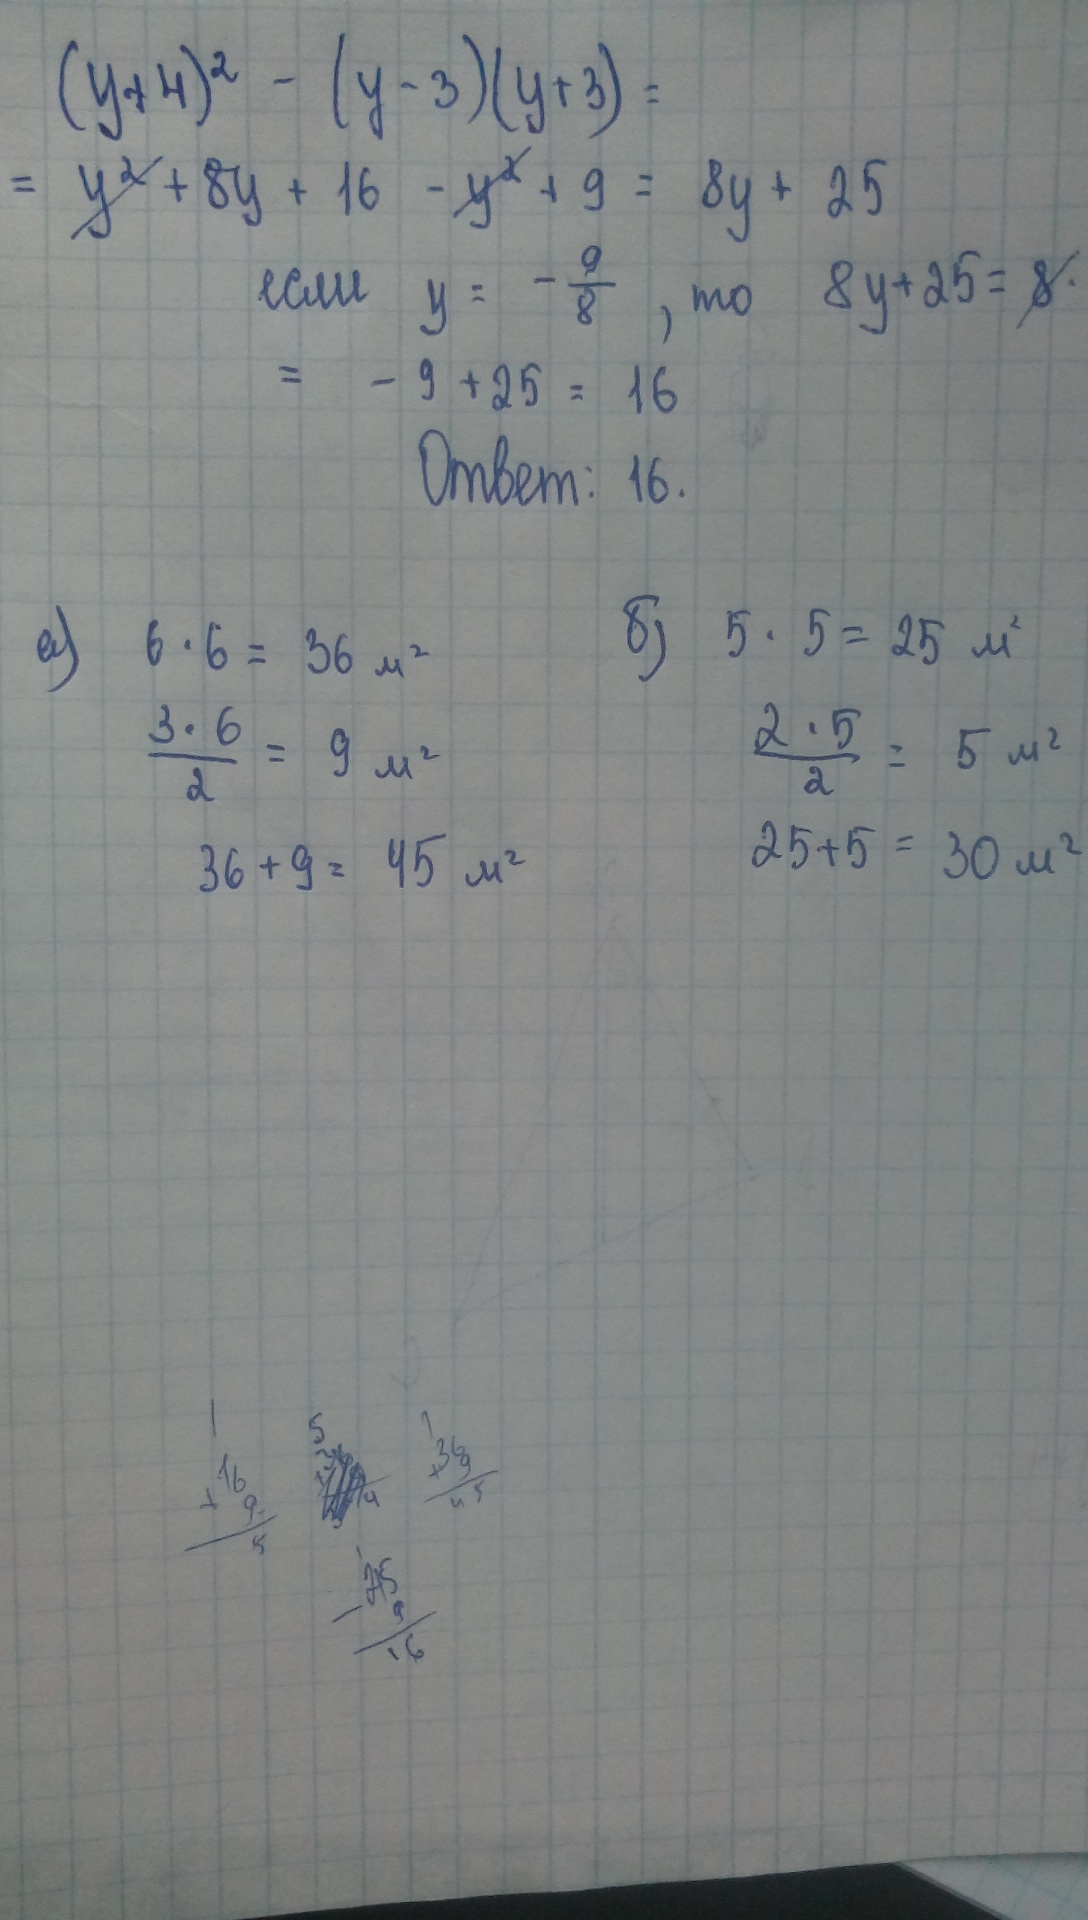 (y+4)² - (y-3)(y+3) =
= y² + 8y + 16 - y² + 9 = 8y + 25
если y = -9/8, то 8y+25 = 8·
= -9 + 25 = 16
Ответ: 16.
а) 6·6 = 36 м²
3·6/2 = 9 м²
36+9 = 45 м²
б) 5·5 = 25 м²
2·5/2 = 5 м²
25+5 = 30 м²
1
+16
9
5
5
4
1
+36
9
45
25
- 9
16